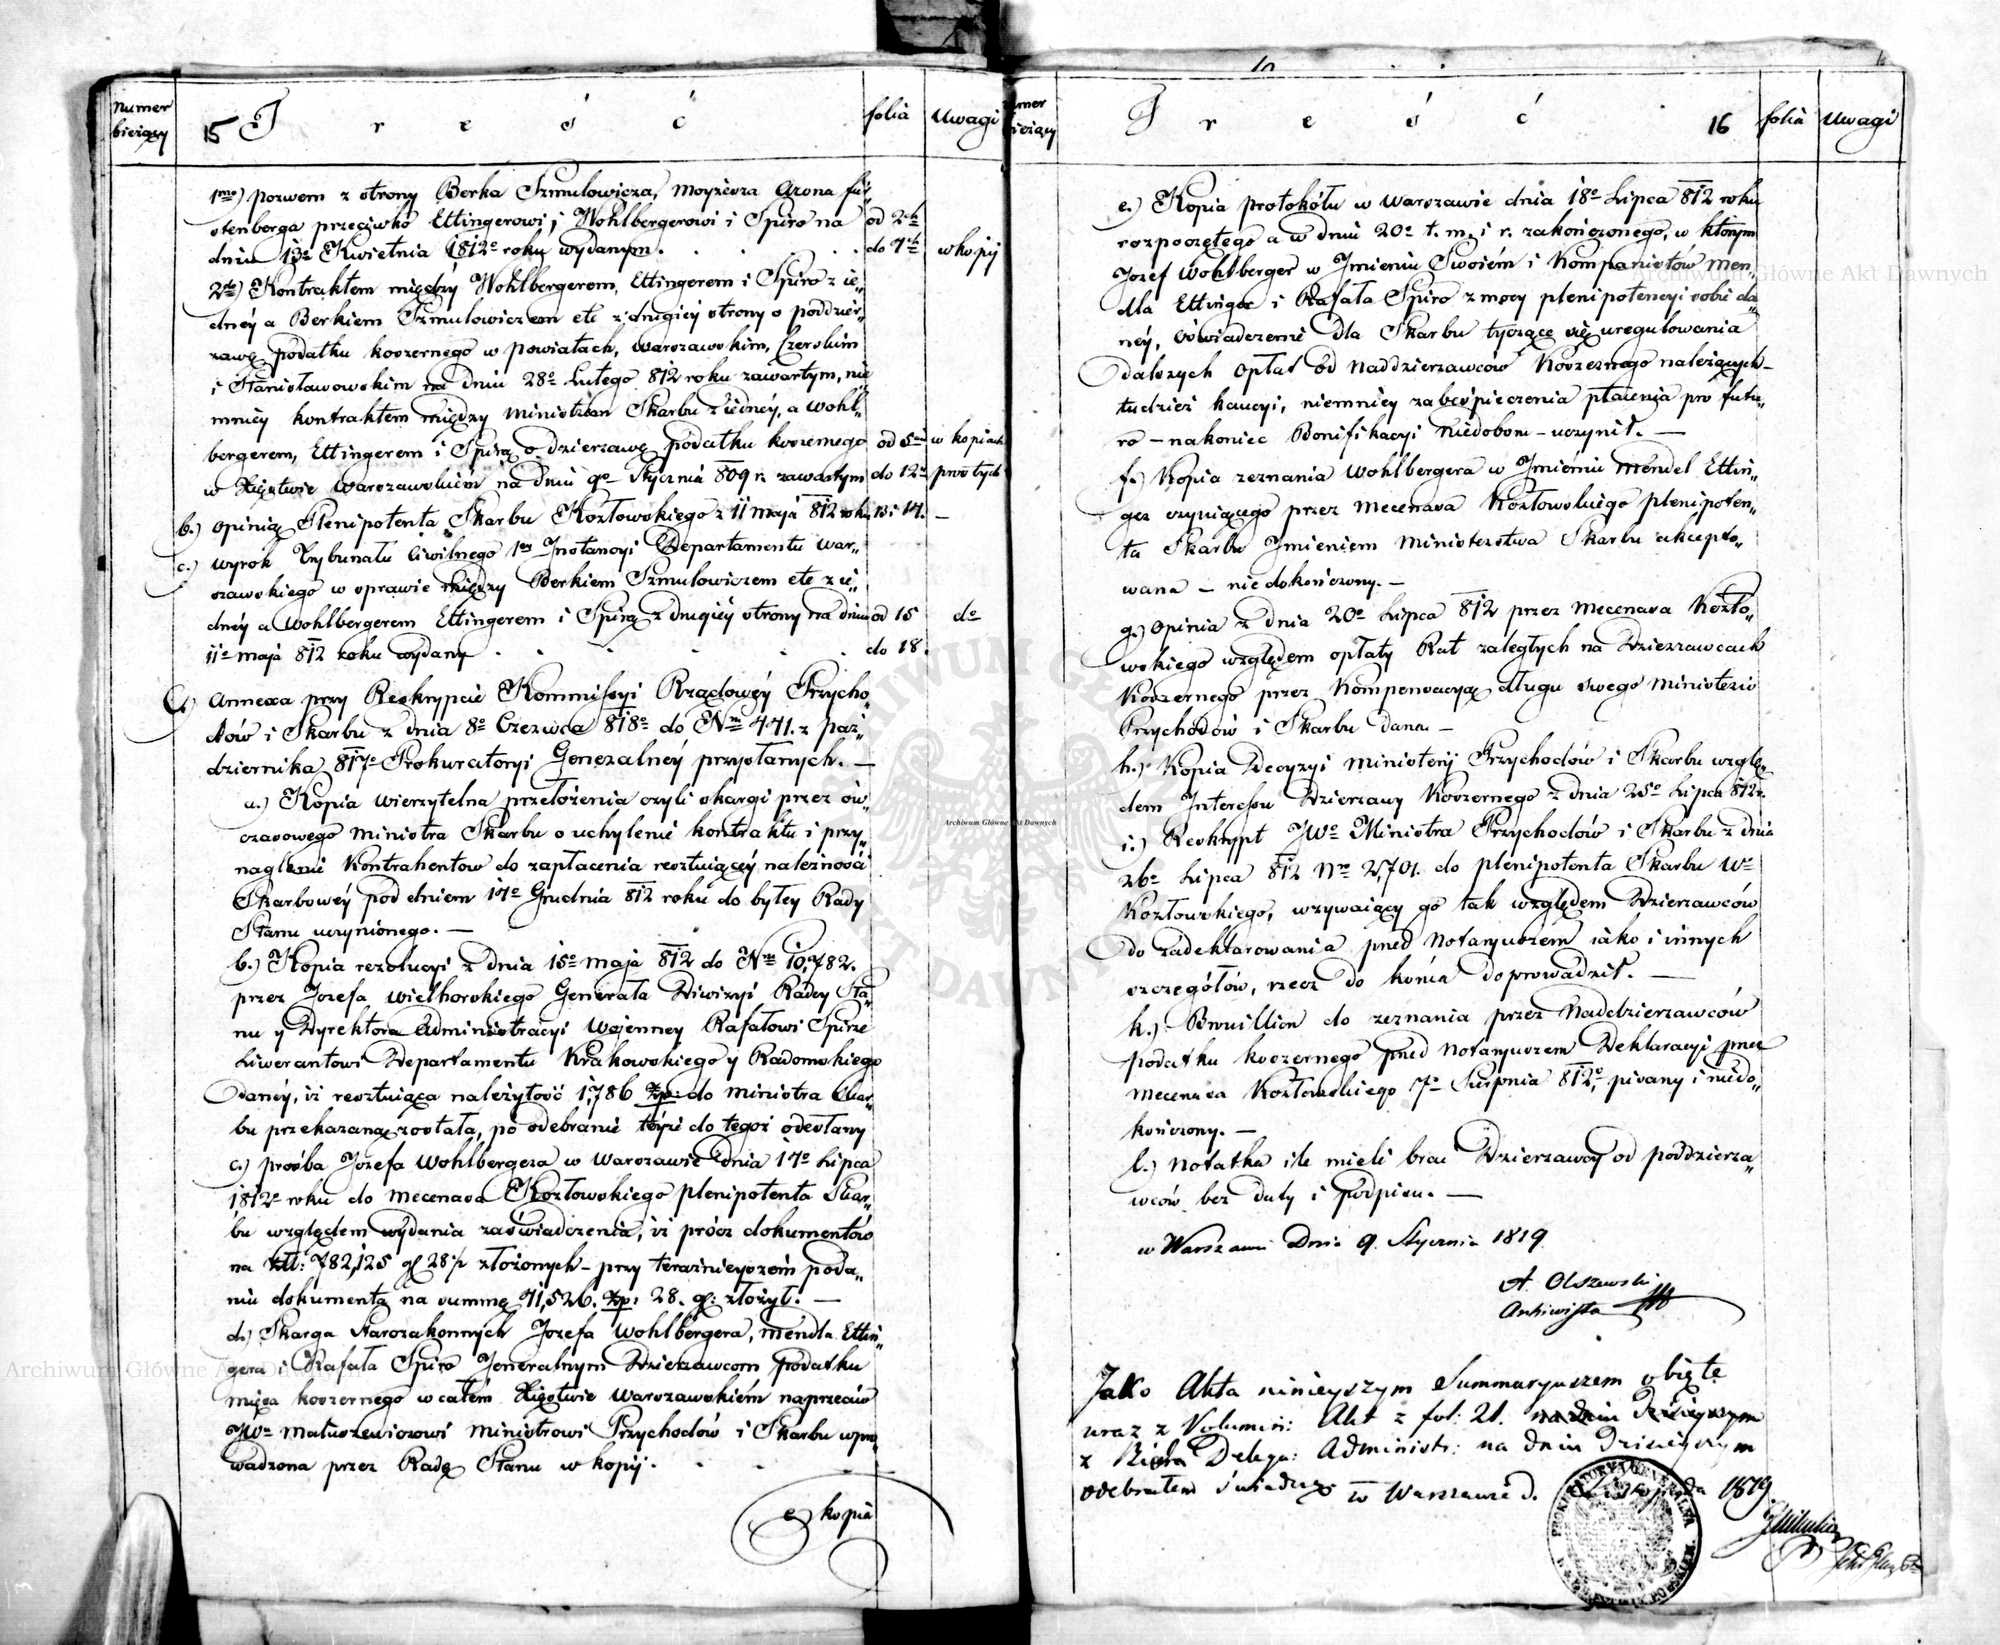 numer bieżący
15 Treść
folia
Uwagi
1mo) pozwem z strony Berka Szmulowicza, Moyżesza Arona Für„
stenberga przeciwko Ettingerowi, Wohlbergerowi i Spiro na od 2
dniu 13o Kwietnia 1812o roku wydanym. do 7 w kopij
2do) Kontraktem między Wohlbergerem, Ettingerem i Spiro z ie„
dnéy a Berkiem Szmulowiczem etc z drugiéy strony o poddzier„
zawę podatku koszernego w powiatach, Warszawskim, Czerskim
i Stanisławowskim na dniu 28o Lutego 812 roku zawartym, nie
mniey kontraktem między ministrem Skarbu z iednéy, a Wohl„
bergerem, Ettingerem i Spirą o dzierzawę podatku koszernego od 8 w kopiach
w Xięstwie Warszawskiém na dniu 9o Stycznia 809 r. zawartym do 12 prostych
b.) opinią Plenipotenta Skarbu Kozłowskiego z 11 maja 812 roku 13 i 14. —
c.) wyrok Trybunału Ciwilnego 1ey Instancyi Departamentu War„
szawskiego w sprawie między Berkiem Szmulowiczem etc z ie„
dnéy a Wohlbergerem Ettingerem i Spirą z drugiéy strony na dniu od 15 do
11o maja 812 roku wydany do 18.
Annexa przy Reskrypcie Kommissyi Rządowéy Przycho„
dów i Skarbu z dnia 8o Czerwca 818o do Nru 471. z paź„
dziernika 817o Prokuratoryi Generalnéy przysłanych. —
a.) Kopia wierzytelna przełożenia czyli skargi przez ów„
czasowego Ministra Skarbu o uchylenie kontraktu i przy„
naglenie Kontrahentow do zapłacenia resztuiącéy należności
Skarbowéy pod dniem 17o Grudnia 812 roku do byłey Rady
Stanu uczynionego. —
b.) Kopia rezolucyi z dnia 15o maja 812 do Nru 10,782.
przez Jozefa Wielhorskiego Generała Diwizyi Radcy Sta„
nu y Dyrektora Administracyi Wojenney Rafałowi Spirze
Liwerantowi Departamentu Krakowskiego y Radomskiego
danéy, iż resztuiąca należytość 1,786 zp: do ministra Skar„
bu przekazana została, po odebranie téyże do tegoż odesłany
c.) prośba Jozefa Wohlbergera w Warszawie dnia 17o Lipca
1812o roku do mecenasa Kozłowskiego plenipotenta Skar„
bu względem wydania zaświadczenia, iż prócz dokumentów
na 782,125 gl 28 złożonych – przy teraźnieyszém poda„
niu dokumenta na summę 71,526. zp: 28. g: złożył. —
d.) Skarga Starozakonnych Jozefa Wohlbergera, Mendla Ettin„
gera i Rafała Spiro Jeneralnym Dzierzawcom podatku
mięsa koszernego w całem Xięstwie Warszawskiém naprzeciw
JWo Matuszewiczowi Ministrowi Przychodów i Skarbu wpro„
wadzona przez Radę Stanu w kopij.
e) kopia
numer bieżący
Treść 16
folia
Uwagi
e.) Kopia protokółu w Warszawie dnia 18o Lipca 812 roku
rozpoczętego a w dniu 20o t. m. i r. zakończonego, w którym
Jozef Wohlberger w Jmieniu Swoiém i Kompanistów Men„
dla Ettinger i Rafała Spiro z mocy plenipotencyi sobie da„
néy, oświadczenie dla Skarbu tyczące się uregulowania
dalszych opłat od Naddzierzawców Koszernego należących –
tudzież kaucyi, niemniey zabespieczenia płacenia pro futu„
ro – nakoniec Bonifikacyi Niedoboru – uczynił. —
f.) Kopia zeznania Wohlbergera w Jmieniu Mendel Ettin„
ger czyniącego przez mecenasa Kozłowskiego plenipoten„
ta Skarbu Jmieniem Ministerstwa Skarbu akcepto„
wana – nie dokończony. –
g.) Opinia z dnia 20o Lipca 812 przez mecenasa Kozło„
wskiego względem opłaty Rat zaległych na Dzierzawcach
Koszernego przez Kompensacyą długu swego Ministerio
Przychodów i Skarbu dana –
h.) Kopia Decyzyi Ministerij Przychodów i Skarbu wzglę„
dem Interessu Dzierzawy Koszernego z dnia 25o Lipca 812r.
i.) Reskrypt JWo Ministra Przychodów i Skarbu z dnia
26o Lipca 812 Nro 2,701. do plenipotenta Skarbu Wo
Kozłowskiego, wzywaiący go tak względem Dzierzawców
do zadeklarowania przed Notaryuszem iako i innych
szczegółów, rzecz do końca doprowadził. —
k.) Brouillion do zeznania przez Naddzierzawców
podatku koszernego przed Notaryuszem Deklaracyi przez
mecenasa Kozłowskiego 7o Sierpnia 812o, pisany i niedo„
kończony. —
l.) Notatka ile mieli brać Dzierzawcy od poddzierza„
wców bez daty i podpisu. —
w Warszawie Dnia 9. Stycznia 1819.
A. Olszewski
Archiwista
Jako Akta ninieyszym Summaryuszem obięte
wraz z Volumin: Akt z fol: 21.
z Biura Delega: Administr: na dniu dzisieyszym
odebrałem świadczę w Warszawie d. 1819
Archiwum Główne Akt Dawnych
Archiwum Główne Akt Dawnych
Archiwum Główne Akt Dawnych